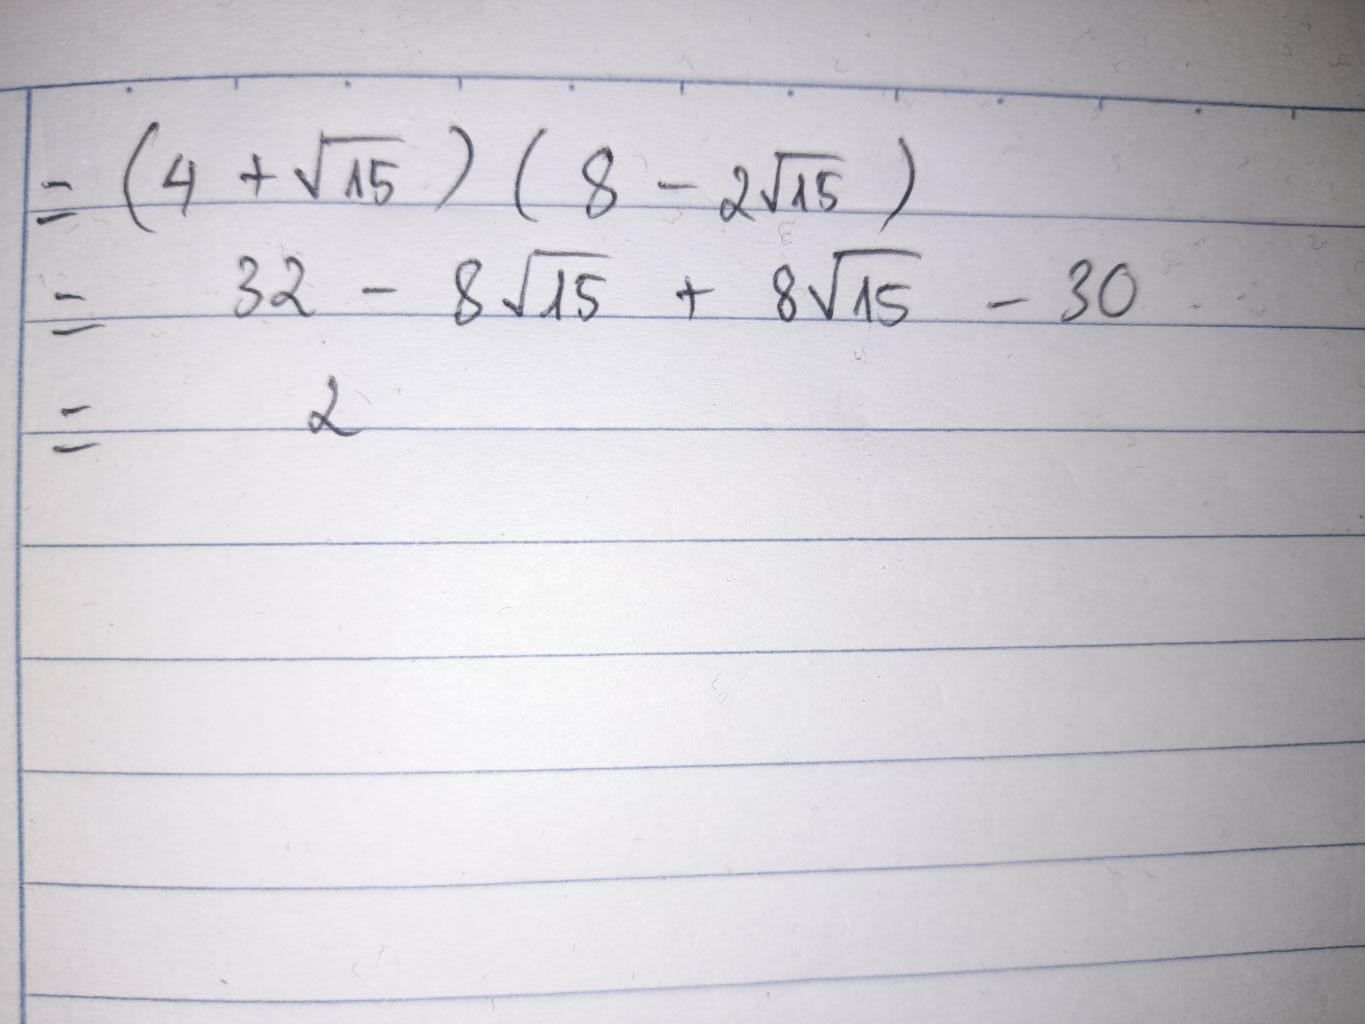 = (4 + √15) (8 - 2√15)
= 32 - 8√15 + 8√15 - 30
= 2